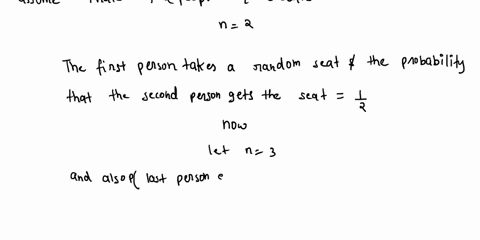 assume that
n = 2
The first person takes a random seat & the probability
that the second person gets the seat = 1/2
now
let n = 3
and also P( last person